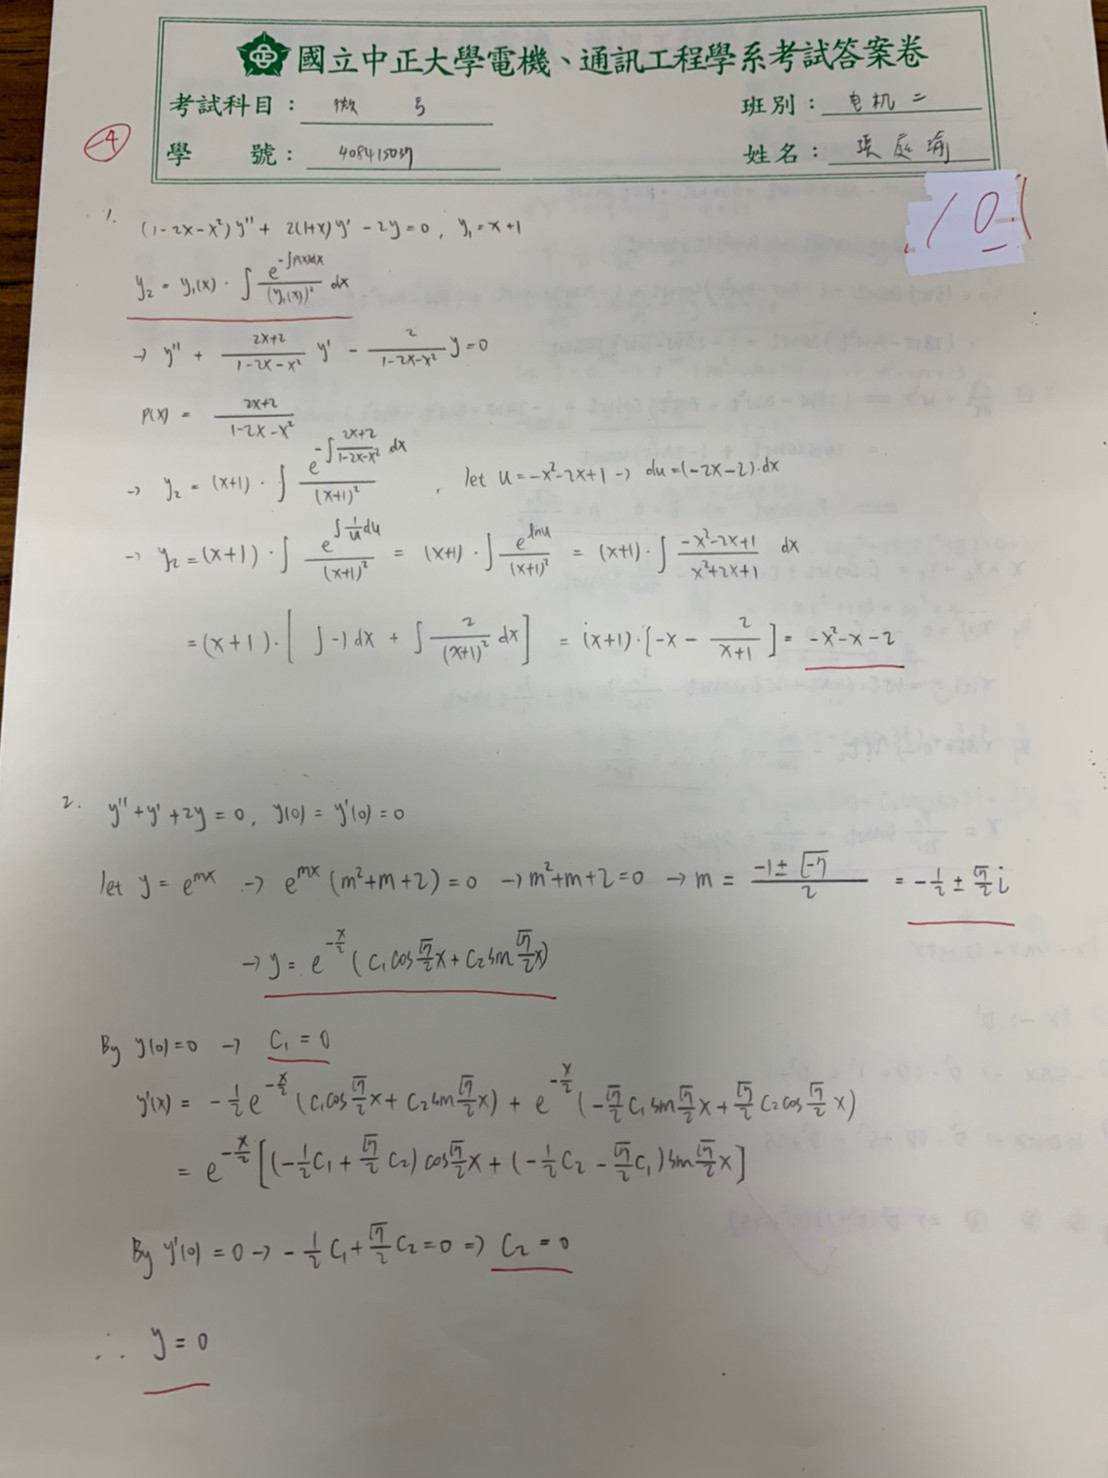 國立中正大學電機、通訊工程學系考試答案卷
考試科目：微 班別：电机二
-4
學 號：408415037 姓名：張庭瑜
101
1. (1-2x-x²)y'' + 2(1+x)y' - 2y = 0, y₁ = x+1
y₂ = y₁(x) · ∫ e^(-∫P(x)dx) / (y₁(x))² dx
→ y'' + (2x+2)/(1-2x-x²) y' - 2/(1-2x-x²) y = 0
P(x) = (2x+2)/(1-2x-x²)
→ y₂ = (x+1) · ∫ e^(-∫(2x+2)/(1-2x-x²) dx) / (x+1)² , let u = -x²-2x+1 → du = (-2x-2)·dx
→ y₂ = (x+1) · ∫ e^(∫(1/u)du) / (x+1)² = (x+1) · ∫ e^(lnu) / (x+1)² = (x+1) · ∫ (-x²-2x+1)/(x²+2x+1) dx
= (x+1) · [ ∫-1 dx + ∫ 2/(x+1)² dx ] = (x+1)·[-x - 2/(x+1)] = -x²-x-2
2. y''+y'+2y = 0, y(0) = y'(0) = 0
let y = e^(mx) → e^(mx) (m²+m+2) = 0 → m²+m+2 = 0 → m = (-1±√-7)/2 = -1/2 ± √7/2 i
→ y = e^(-x/2) (c₁cos √7/2 x + c₂sin √7/2 x)
By y(0)=0 → C₁ = 0
y'(x) = -1/2 e^(-x/2) (c₁cos √7/2 x + c₂sin √7/2 x) + e^(-x/2) (-√7/2 c₁ sin √7/2 x + √7/2 c₂ cos √7/2 x)
= e^(-x/2) [(-1/2 c₁ + √7/2 c₂) cos √7/2 x + (-1/2 c₂ - √7/2 c₁) sin √7/2 x]
By y'(0) = 0 → -1/2 c₁ + √7/2 c₂ = 0 ⇒ C₂ = 0
∴ y = 0